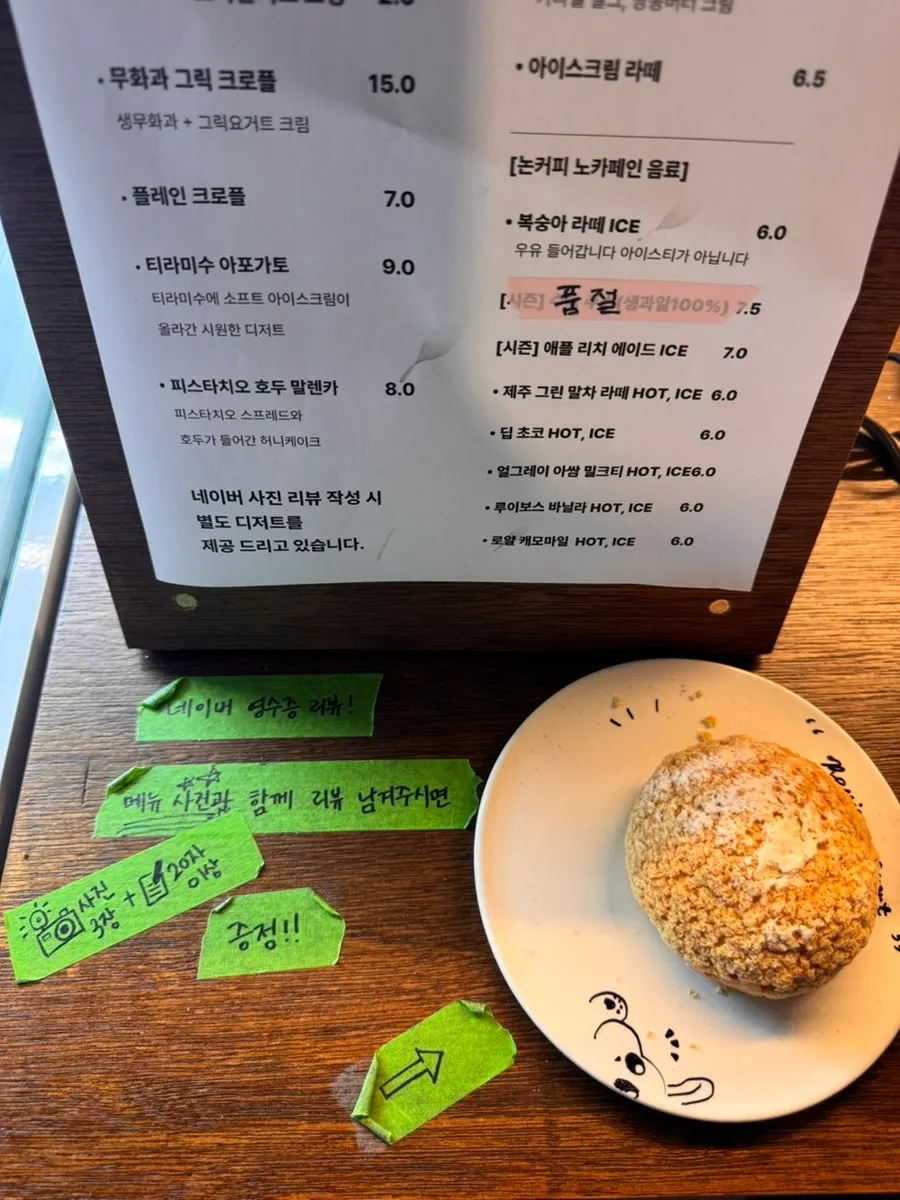 • 무화과 그릭 크로플 15.0
생무화과 + 그릭요거트 크림
• 플레인 크로플 7.0
• 티라미수 아포가토 9.0
티라미수에 소프트 아이스크림이
올라간 시원한 디저트
• 피스타치오 호두 말렌카 8.0
피스타치오 스프레드와
호두가 들어간 허니케이크
네이버 사진 리뷰 작성 시
별도 디저트를
제공 드리고 있습니다.
• 아이스크림 라떼 6.5
[논커피 노카페인 음료]
• 복숭아 라떼 ICE 6.0
우유 들어갑니다 아이스티가 아닙니다
[시즌] (생과일100%) 7.5
품절
[시즌] 애플 리치 에이드 ICE 7.0
• 제주 그린 말차 라떼 HOT, ICE 6.0
• 딥 초코 HOT, ICE 6.0
• 얼그레이 아쌈 밀크티 HOT, ICE6.0
• 루이보스 바닐라 HOT, ICE 6.0
• 로얄 캐모마일 HOT, ICE 6.0
네이버 영수증 리뷰!
메뉴 사진과 함께 리뷰 남겨주시면
사진 3장 + 20자 이상
증정!!